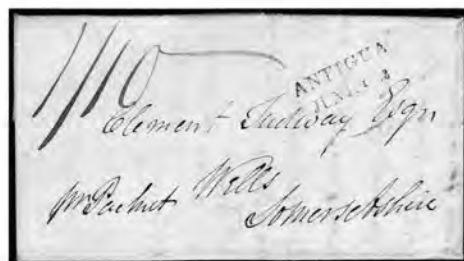 1/10
ANTIGUA
Clement Tudway Esqr
pr Packet Wells
Somersetshire